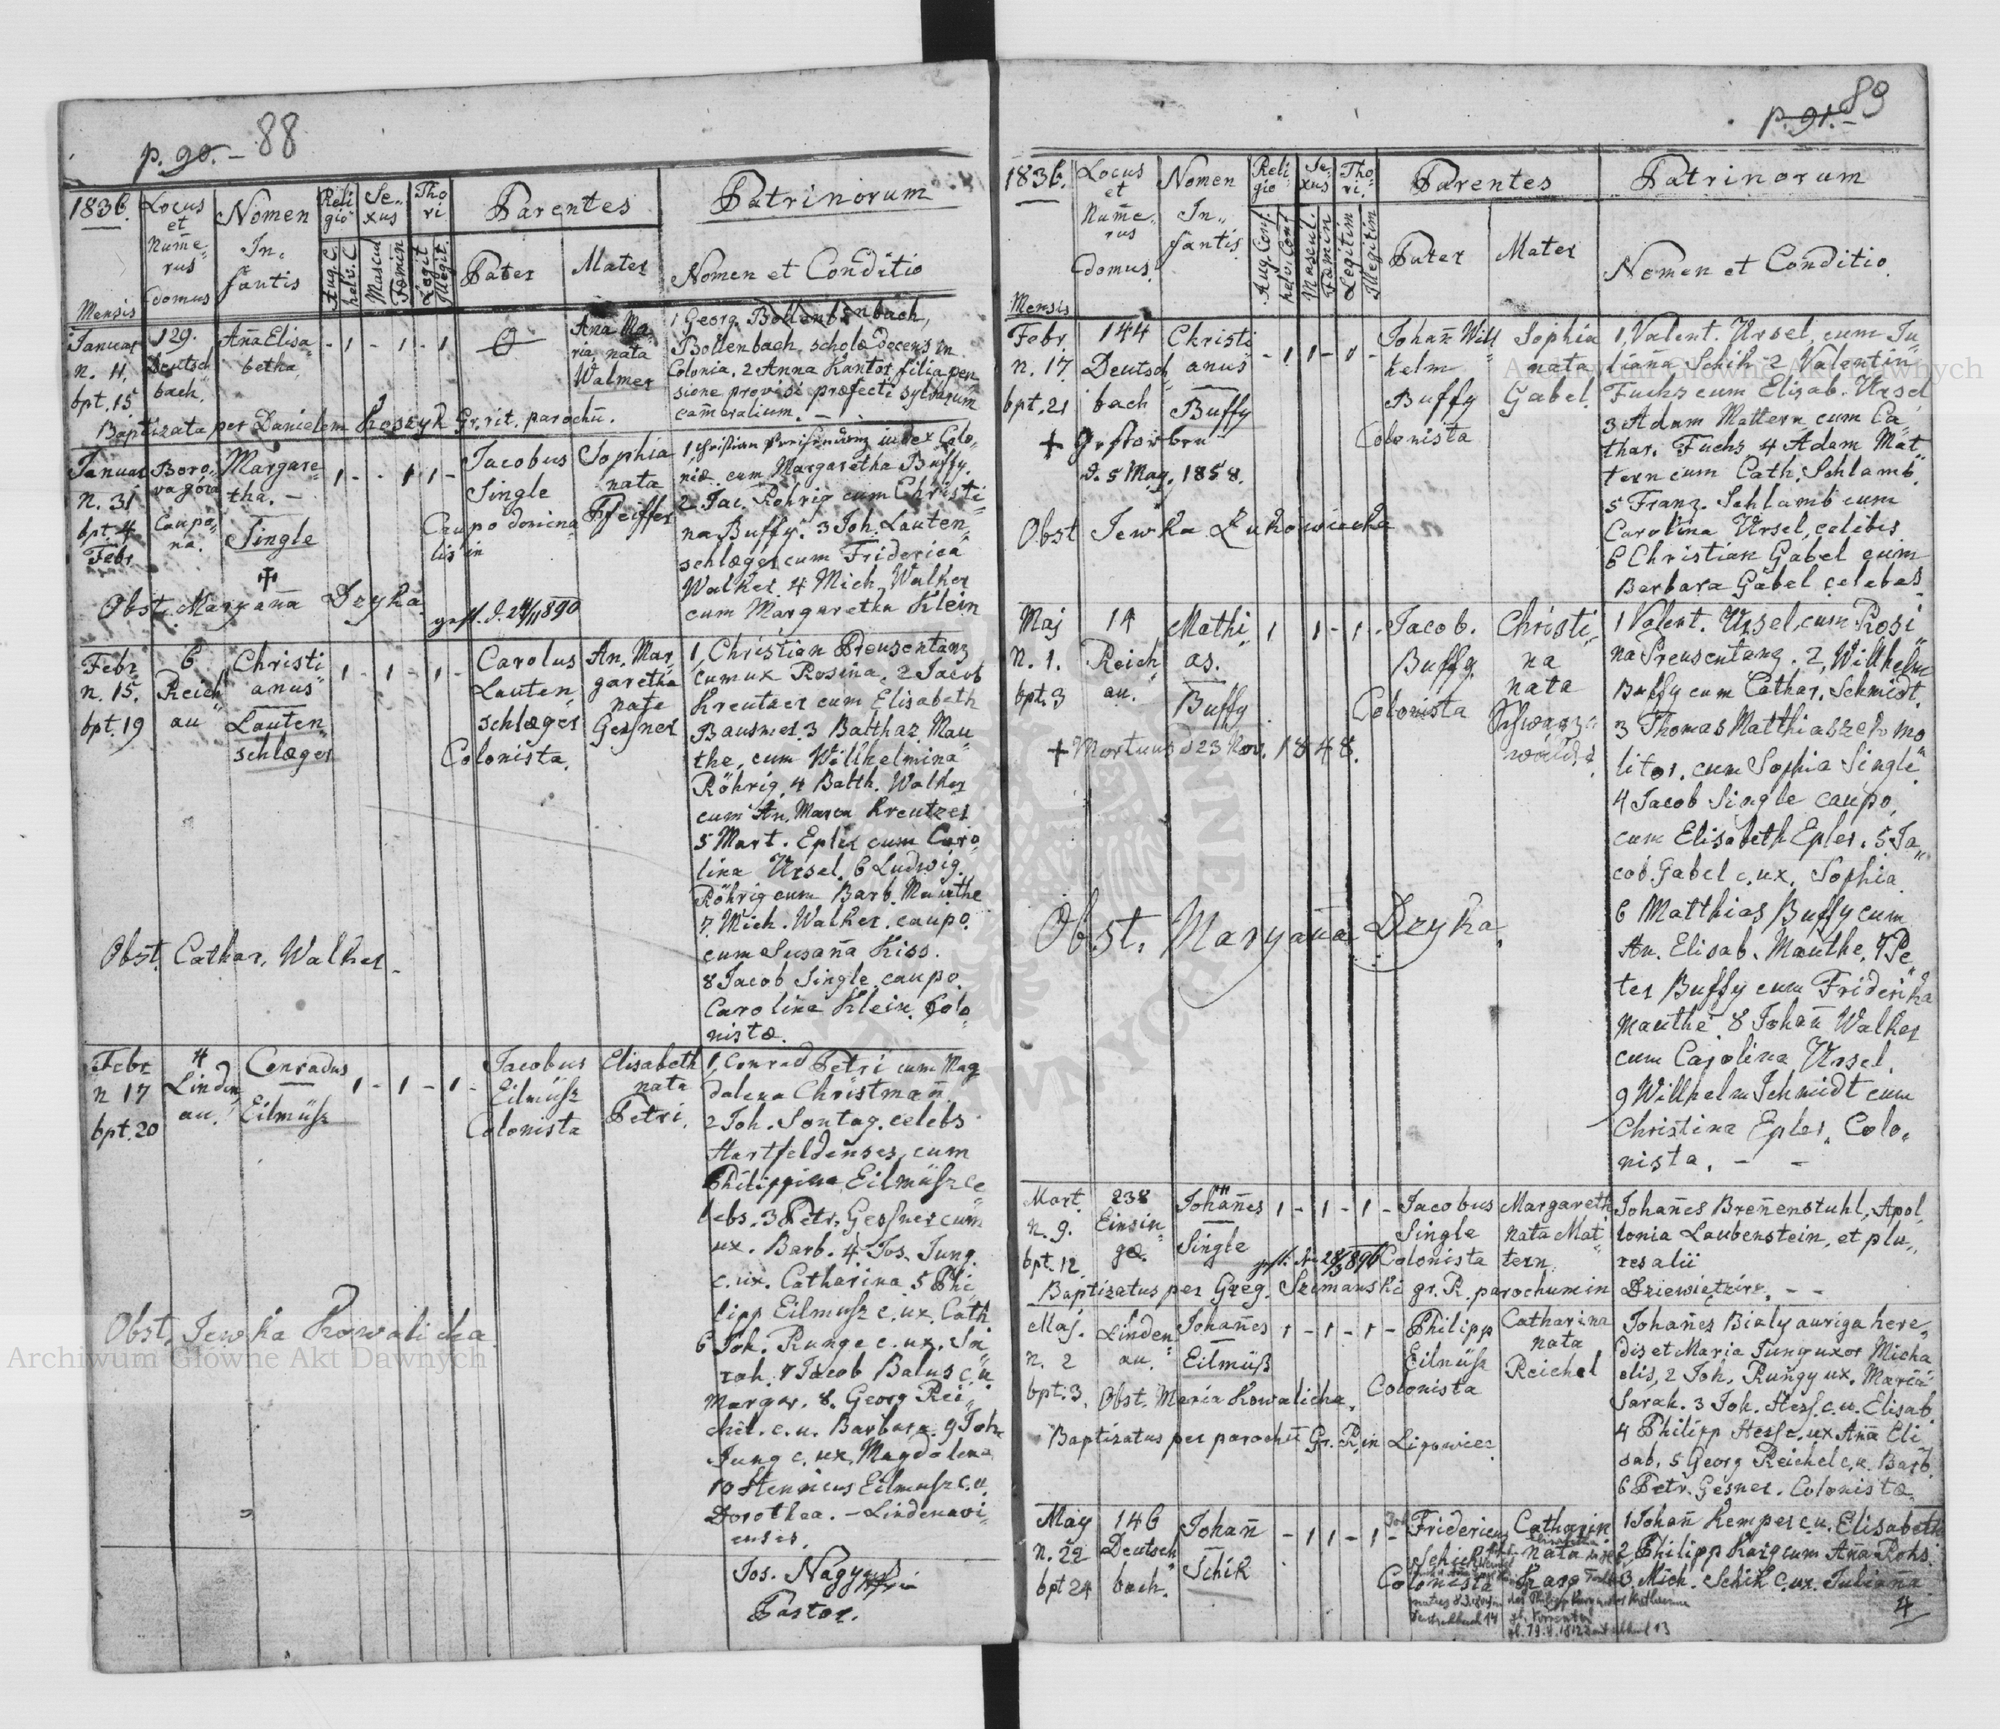 p. 90. – 88
1836.
Locus et Nume„rus domus
Nomen In„fantis
Religio
Sexus
Thori
Parentes
Patrinorum
Mensis
Aug. C.
helv. C
Mascul
Fæmin
Legit
Illegit.
Pater
Mater
Nomen et Conditio
Januar n. 11. bpt. 15
129. Deutsch„bach.
Aña Elisa„betha
- 1 - 1 - 1
O
Ana Ma„ria nata Walmer
1 Georg. Bollenbach,
Bollenbach scholæ docens in
Colonia, 2 Anna Kantor filia pen
sione provisi præfecti sylvarum
cam̄eralium. —
Baptizata per Danielem Koszyk Gr. rit. parochū.
Januar N. 31 bpt. 4 Febr
Boro„va góra Caupo„na.
Margare„tha. – Single
1 - - 1 1 -
Jacobus Single Caupo domina„lis in
Sophia nata Pfeiffer
1, Christian Preisendanz iudex Colo„
niæ cum Margaretha Buffy.
2 Jac. Röhrig cum Christi„
na Buffy. 3 Joh. Lauten„
schlæger cum Friderica
Walker. 4 Mich. Walker
cum Margaretha Klein
Obst. Maryaña Dzyka
gest. d. 24/11 890
Febr n. 15. bpt. 19
6 Reich„au
Christi„anus Lauten„schlæger
1 - 1 - 1 -
Carolus Lauten„schlæger Colonista.
An. Mar„garetha nata Gesner
1, Christian Preusentanz
cum ux Rosina. 2 Jacob
Kreutzer cum Elisabeth
Bausmer. 3 Balthaz. Mau„
the, cum Willhelmina
Röhrig. 4 Balth. Walker
cum An. Maria Kreutzer
5 Mart. Epler cum Caro„
lina Ursel. 6 Ludwig.
Röhrig cum Barb. Mauthe
7. Mich. Walker. caupo.
cum Susaña Kiss.
8 Jacob Single caupo.
Carolina Klein. Colo„
nistæ.
Obst. Cathar. Walker –
Febr n 17 bpt. 20
4 Linden„au.
Conradus Eilmüsz
1 - 1 - 1 -
Jacobus Eilmüsz Colonista
Elisabeth nata Petri.
1, Conrad Petri cum Mag
dalena Christmañ.
2 Joh. Sontag. celebs
Hartfeldenses, cum
Philippina Eilmüsz ce„
lebs. 3 Petr. Gesner cum
ux. Barb. 4. Jos. Jung
c. ux. Catharina. 5 Phi
lipp Eilmusz c. ux. Cath
6 Joh. Runge c. ux. Sa„
rah. 7 Jacob Balus c. u
Margar. 8. Georg Rei„
chel. c. u. Barbara. 9 Joh.
Jung c. ux. Magdalena
10 Henricus Eilmusz c. u.
Dorothea. – Lindenavi„
enses.
Obst. Jewka Kowalicka
Archiwum Główne Akt Dawnych
Jos. Nagy
Pastor.
p. 91. – 89
1836.
Locus et Nume„rus domus.
Nomen In„fantis.
Religio
Sexus
Thori
Parentes
Patrinorum
Mensis
Aug. Conf.
helv. Conf
Mascul.
Fæmin
Legitim
Illegitim
Pater
Mater
Nomen et Conditio.
Febr. n. 17. bpt. 21
144 Deutsch„bach
Christi„anus Buffy
- 1 1 - 1 -
Johañ Will„helm Buffy Colonista
Sophia nata Gabel.
1, Valent. Ursel, cum Ju„
liaña Schik 2 Valentin
Fuchs cum Elisab. Ursel
3 Adam Mattern cum Ca„
thar. Fuchs 4 Adam Mat„
tern cum Cath. Schlamb.
5 Franz. Schlamb cum
Carolina Ursel, celibes
6 Christian Gabel cum
Barbara Gabel celebes
+ Gestorben
d. 5 May. 1858.
Obst Jewka Łukowiecka
Archiwum Główne Akt Dawnych
Maj N. 1. bpt. 3
14 Reich„au.
Mathi„as. Buffy
1 1 - 1 -
Jacob. Buffy. Colonista
Christi„na nata Schwarz„wälder
1 Valent. Ursel, cum Rosi„
na Preusentanz. 2, Willhelm
Buffy cum Cathar. Schmidt.
3 Thomas Matthiaszek mo„
litor. cum Sophia Single
4 Jacob Single caupo.
cum Elisabeth Epler. 5 Ja„
cob Gabel c. ux. Sophia
6 Matthias Buffy cum
An. Elisab. Mauthe. 7 Pe„
ter Buffy cum Friderika
Mauthe 8 Johañ Walker
cum Carolina Ursel.
9 Willhelm Schmidt cum
Christina Epler. Colo„
nista. – –
+ Mortuus d 23 Nov. 1848.
Obst. Maryaña Dzyka.
Mart. n. 9. bpt. 12
238 Einsin„gæ.
Johañes Single
1 - 1 - 1 -
Jacobus Single Colonista
Margareth nata Mat„tern
Johañes Breñenstuhl, Apol„
lonia Laubenstein, et plu„
res alii
Baptizatus per Greg. Szimanski gr. R. parochum in Dziewiętzirz. – –
Maj. n. 2 bpt. 3.
Linden„au.
Johañes Eilmüß
1 - 1 - 1 -
Philipp Eilmüsz Colonista
Catharina nata Reichel
Johañes Bialy auriga here„
dis et Maria Jung uxor Micha
elis, 2 Joh. Rungy ux. Maria
Sarah. 3 Joh. Hess. c. u. Elisab.
4 Philipp Hess c. ux Aña Eli
sab. 5 Georg Reichel c. u. Barb.
6 Petr. Gesner. Colonistæ.
Obst. Maria Kowalicka.
Baptizatus per parochū Gr. R. in Ligowiec.
May n. 22 bpt 24
146 Deutsch„bach.
Johañ Schik
- 1 1 - 1 -
Fridericus Schick Colonista
Catharin nata Karg
1 Johañ Kemper c. u. Elisabeth
2 Philipp Karg cum Aña Rohs.
3. Mich. Schik c. ux. Juliaña
4